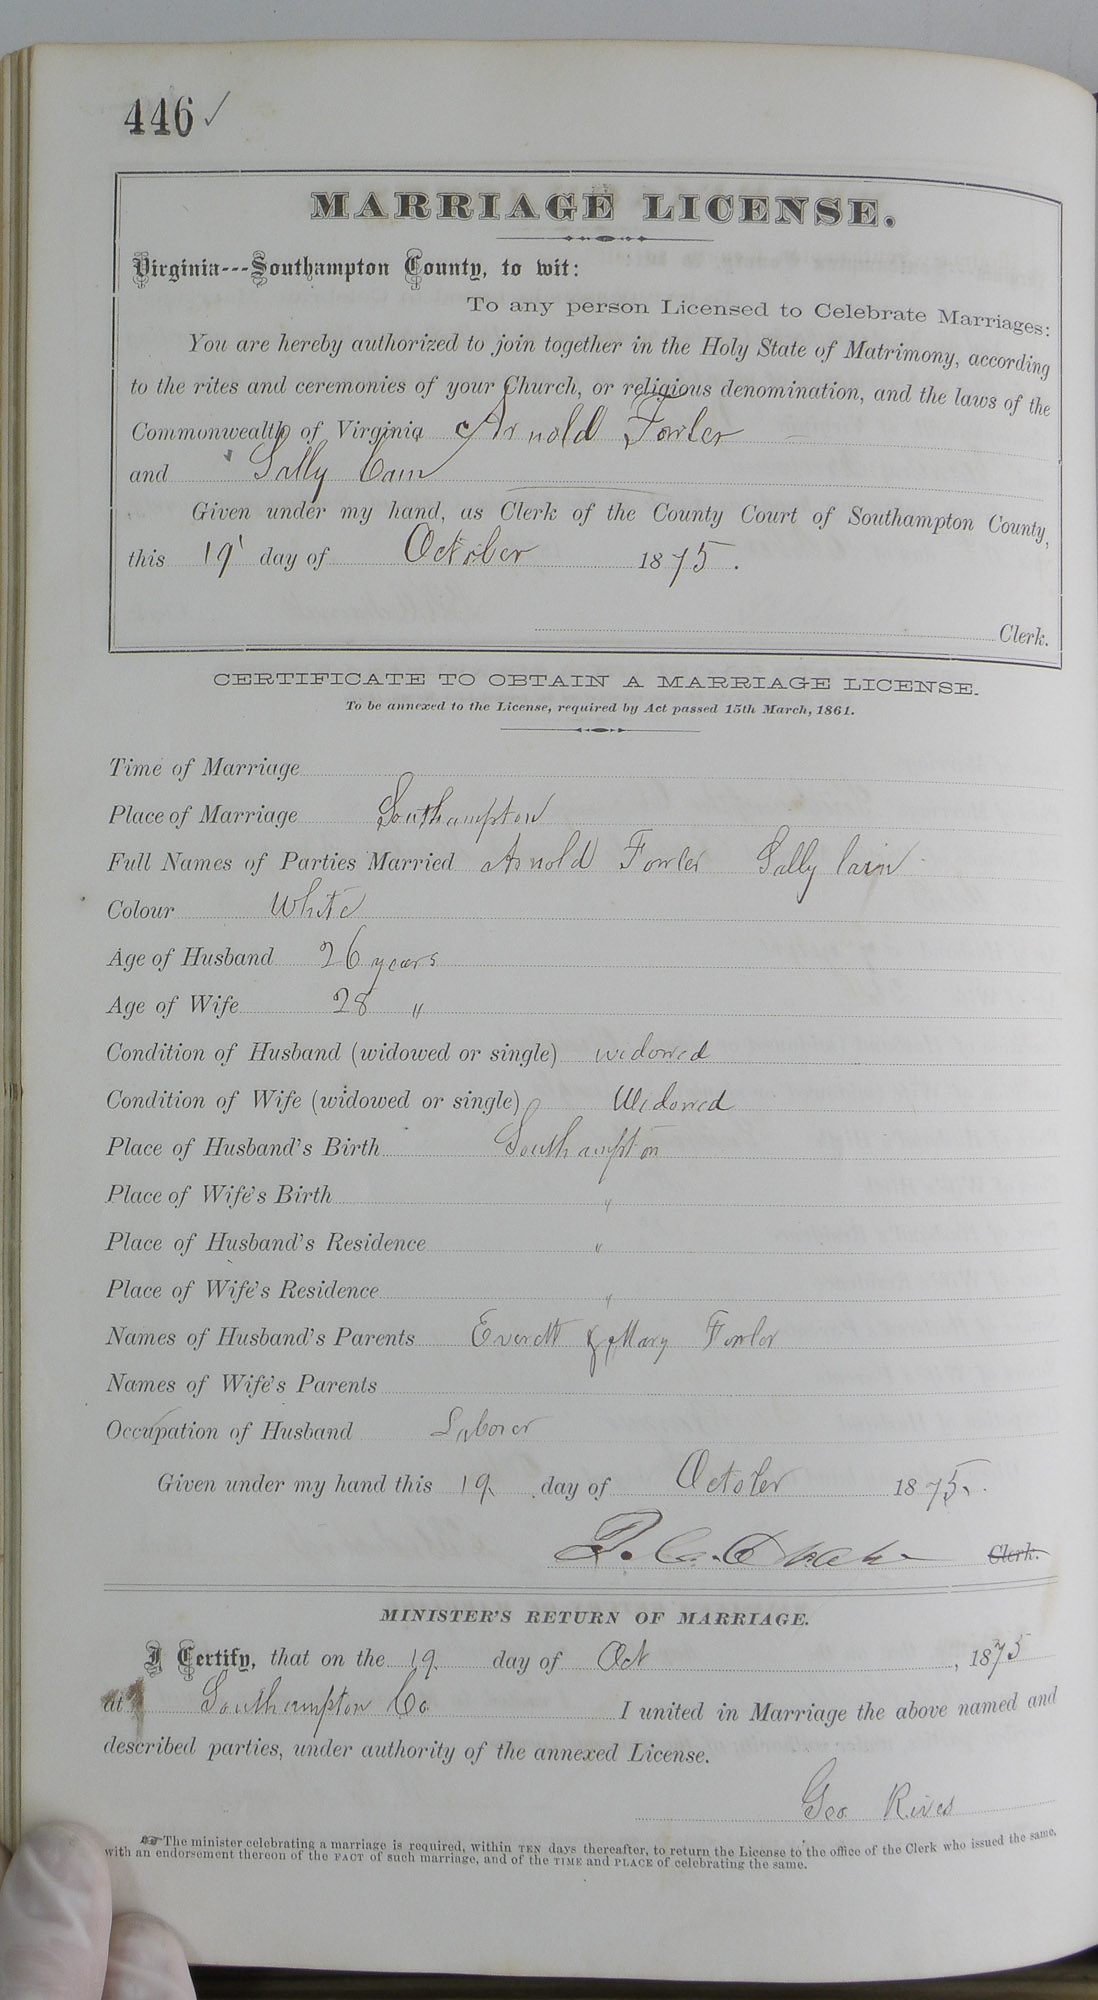 446 ✓
MARRIAGE LICENSE.
Virginia---Southampton County, to wit:
To any person Licensed to Celebrate Marriages:
You are hereby authorized to join together in the Holy State of Matrimony, according
to the rites and ceremonies of your Church, or religious denomination, and the laws of the
Commonwealth of Virginia Arnold Fowler
and Sally Cain
Given under my hand, as Clerk of the County Court of Southampton County,
this 19 day of October 1875.
Clerk.
CERTIFICATE TO OBTAIN A MARRIAGE LICENSE.
To be annexed to the License, required by Act passed 15th March, 1861.
Time of Marriage
Place of Marriage Southampton
Full Names of Parties Married Arnold Fowler Sally Cain
Colour White
Age of Husband 26 years
Age of Wife 28 "
Condition of Husband (widowed or single) widowed
Condition of Wife (widowed or single) Widowed
Place of Husband's Birth Southampton
Place of Wife's Birth "
Place of Husband's Residence "
Place of Wife's Residence "
Names of Husband's Parents Everett & Mary Fowler
Names of Wife's Parents
Occupation of Husband Laborer
Given under my hand this 19 day of October 1875.
Clerk.
MINISTER'S RETURN OF MARRIAGE.
I Certify, that on the 19 day of Oct , 1875
at Southampton Co I united in Marriage the above named and
described parties, under authority of the annexed License.
Geo Rives
☞ The minister celebrating a marriage is required, within TEN days thereafter, to return the License to the office of the Clerk who issued the same,
with an endorsement thereon of the FACT of such marriage, and of the TIME and PLACE of celebrating the same.